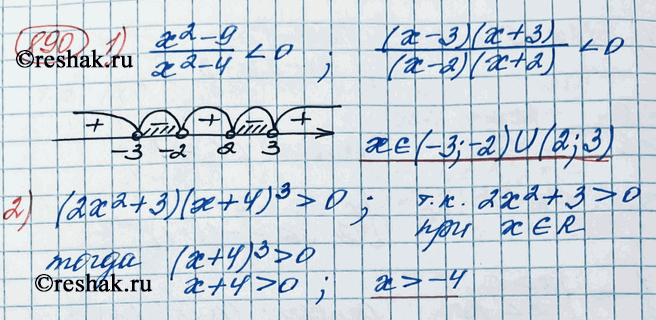 890 1) (x²-9)/(x²-4) < 0 ; (x-3)(x+3)/(x-2)(x+2) < 0
©reshak.ru
+ - + - +
-3 -2 2 3
x∈(-3;-2)∪(2;3)
2) (2x²+3)(x+4)³>0 ; т.к. 2x²+3>0
при x∈R
тогда (x+4)³>0
©reshak.ru x+4>0 ; x>-4